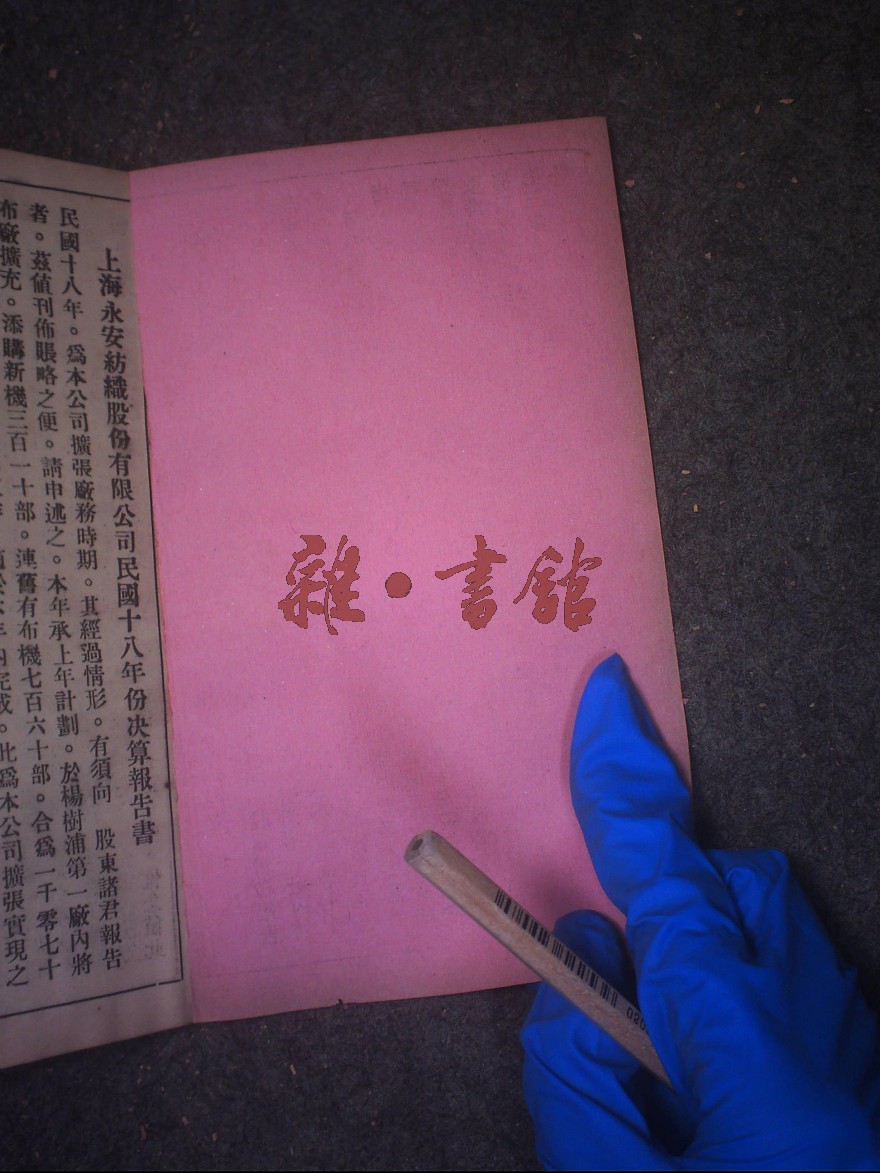 上海永安紡織股份有限公司民國十八年份决算報告書
民國十八年。爲本公司擴張廠務時期。其經過情形。有須向　股東諸君報告
者。茲値刊佈賬略之便。請申述之。本年承上年計劃。於楊樹浦第一廠內將
布廠擴充。添購新機三百一十部。連舊有布機七百六十部。合爲一千零七十
內完成。此爲本公司擴張實現之
雜•書館